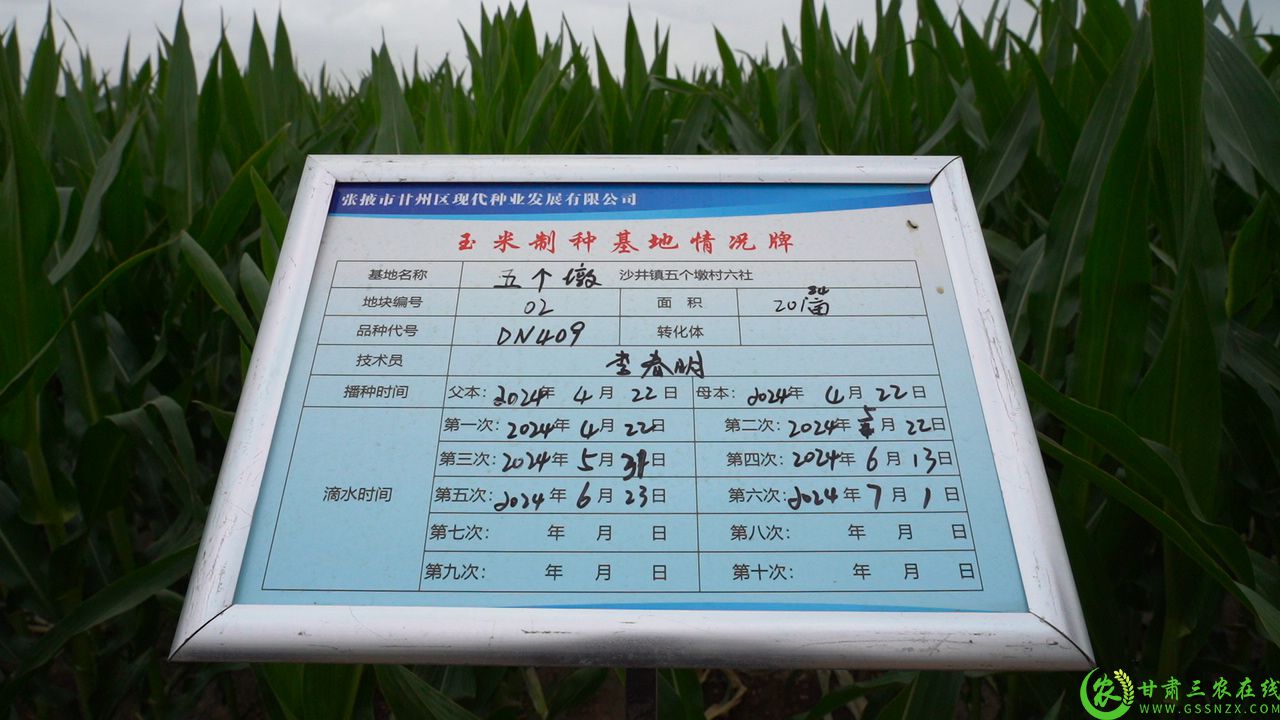 张掖市甘州区现代种业发展有限公司
玉米制种基地情况牌
基地名称 五个墩 沙井镇五个墩村六社
地块编号 02 面积 201亩
品种代号 DN409 转化体
技术员 李春明
播种时间 父本: 2024年 4月 22日 母本: 2024年 4月 22日
第一次: 2024年 4月 22日 第二次: 2024年 5月 22日
第三次: 2024年 5月 31日 第四次: 2024年 6月 13日
滴水时间 第五次: 2024年 6月 23日 第六次: 2024年 7月 1日
第七次: 年 月 日 第八次: 年 月 日
第九次: 年 月 日 第十次: 年 月 日
农 甘肃三农在线
WWW.GSSNZX.COM